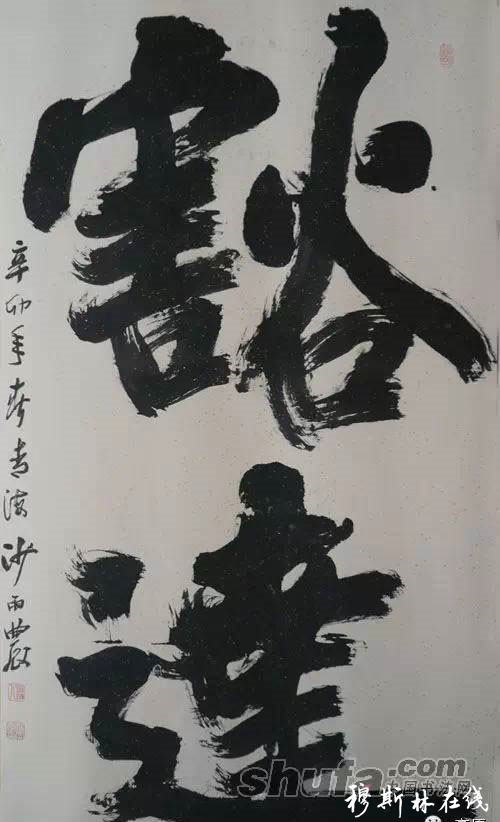 豁達
辛卯年春青海沙雨農
shufa.com
中国书法网
穆斯林在线